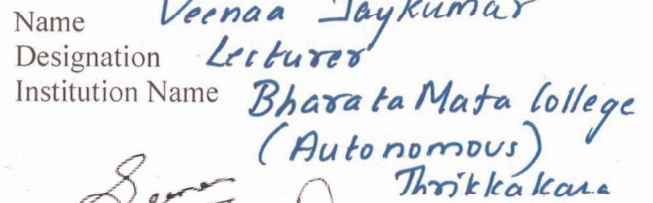 Name Veenaa Jaykumar
Designation Lecturer
Institution Name Bharata Mata College
(Autonomous)
Thrikkakara